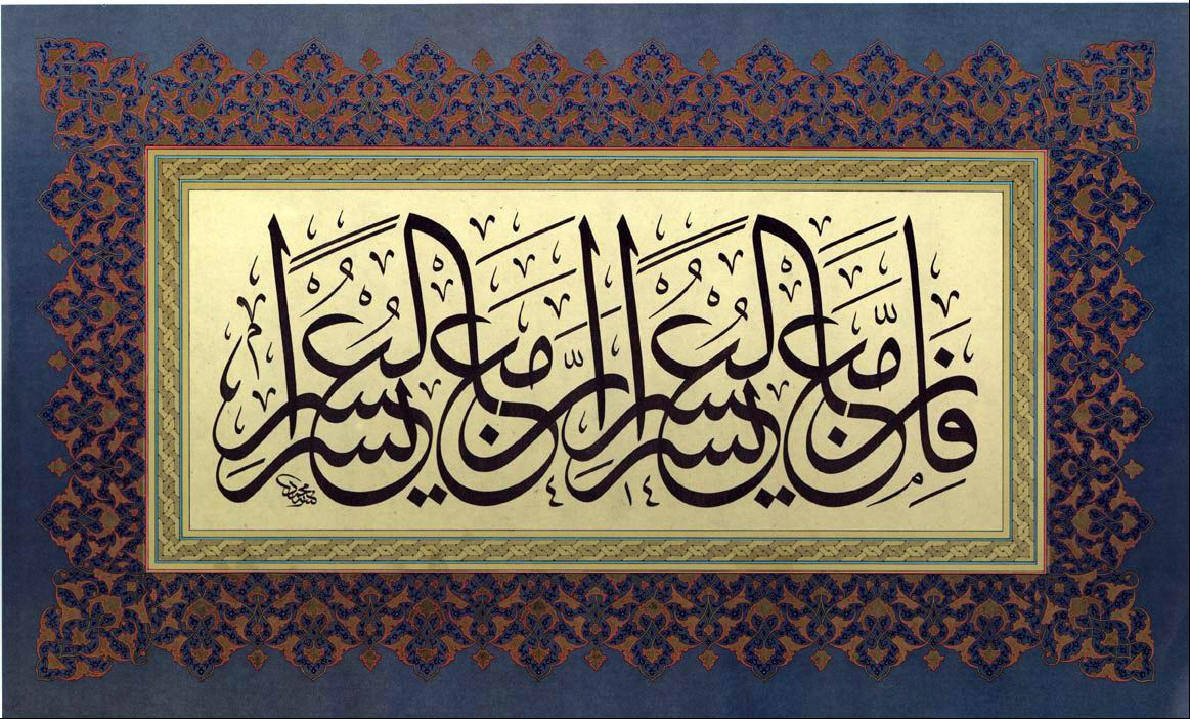 فَإِنَّ مَعَ الْعُسْرِ يُسْرًا إِنَّ مَعَ الْعُسْرِ يُسْرًا
١٤ ٤